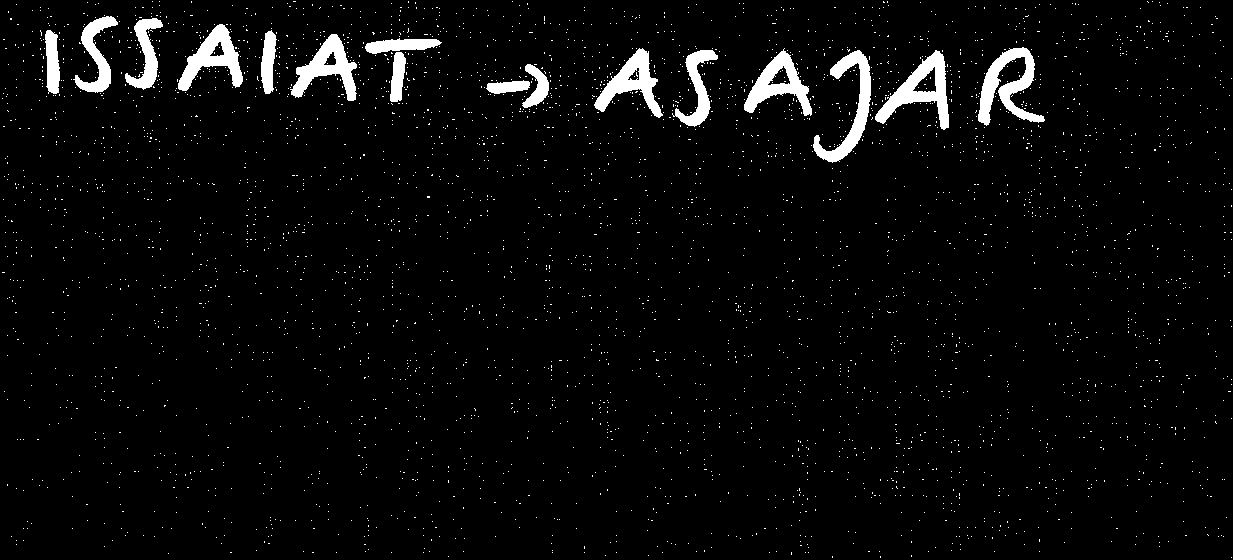 ISSAIAT → ASAJAR